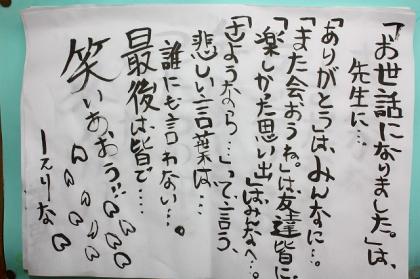 「お世話になりました。」は、
先生に…
「ありがとう」は、みんなに…。
「また会おうね。」は友達皆に、
「楽しかった思い出」はみなへ…。
「さようなら…」って言う、
悲しい言葉は…
誰にも言わない…。
最後は皆で…
笑いあおう!!